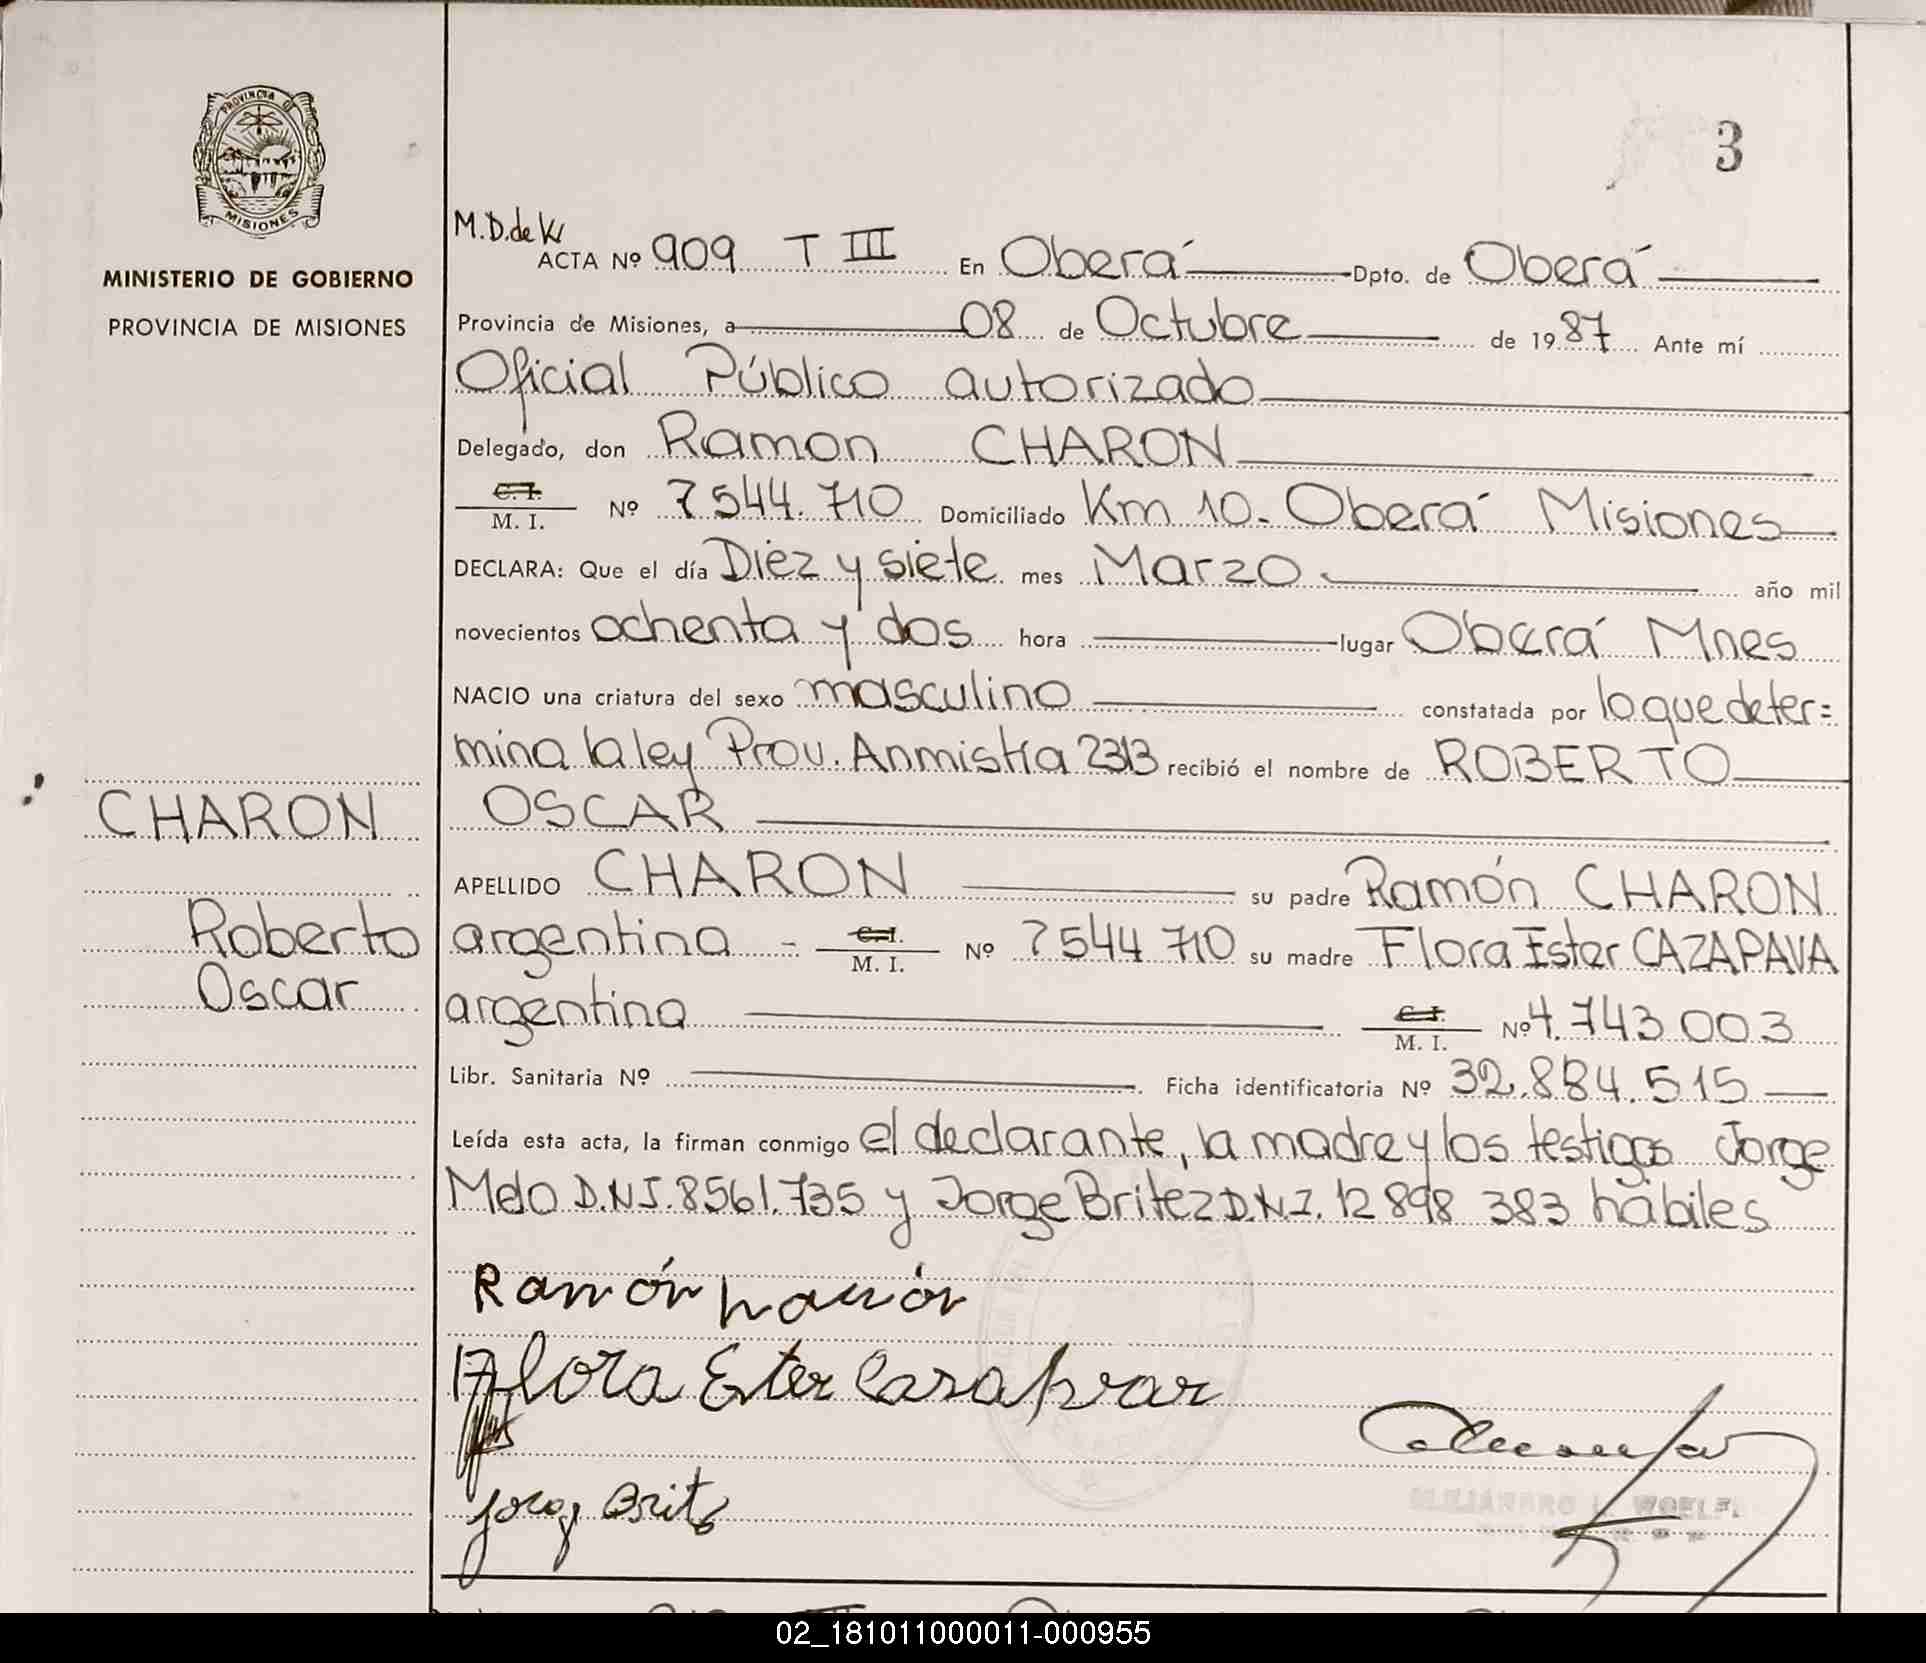 PROVINCIA DE
MISIONES
MINISTERIO DE GOBIERNO
PROVINCIA DE MISIONES
3
M.D.de K
ACTA Nº 909 T III En Oberá Dpto. de Oberá
Provincia de Misiones, a 08 de Octubre de 1987 Ante mí
Oficial Público autorizado
Delegado, don Ramon CHARON
C. I.
M. I. Nº 7544.710 Domiciliado Km 10. Oberá Misiones
DECLARA: Que el día Diez y siete mes Marzo año mil
novecientos ochenta y dos hora lugar Oberá Mnes
NACIO una criatura del sexo masculino constatada por lo que deter=
mina la ley Prov. Anmistia 2313 recibió el nombre de ROBERTO
CHARON OSCAR
APELLIDO CHARON su padre Ramón CHARON
Roberto argentina = C. I. M. I. Nº 7544 710 su madre Flora Ester CAZAPAVA
Oscar argentina C. I. M. I. Nº 4.743 003
Libr. Sanitaria Nº Ficha identificatoria Nº 32.884.515
Leída esta acta, la firman conmigo el declarante, la madre y los testigos Jorge
Melo D.N.I. 8561.735 y Jorge Britez D.N.I. 12 898 383 hábiles
Ramón
Flora Ester
02_181011000011-000955